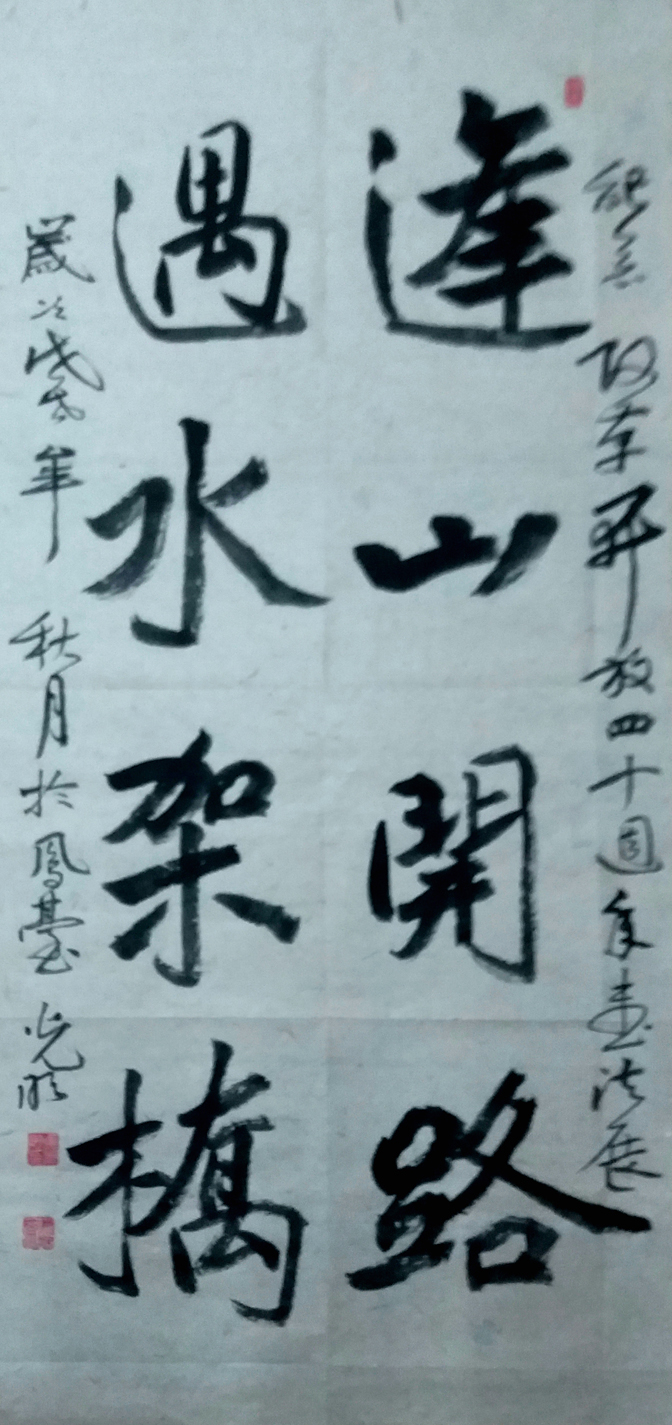 紀念 改革開放四十週年書法展
逢山開路
遇水架橋
歲次戊戌年 秋月於鳳臺 光明